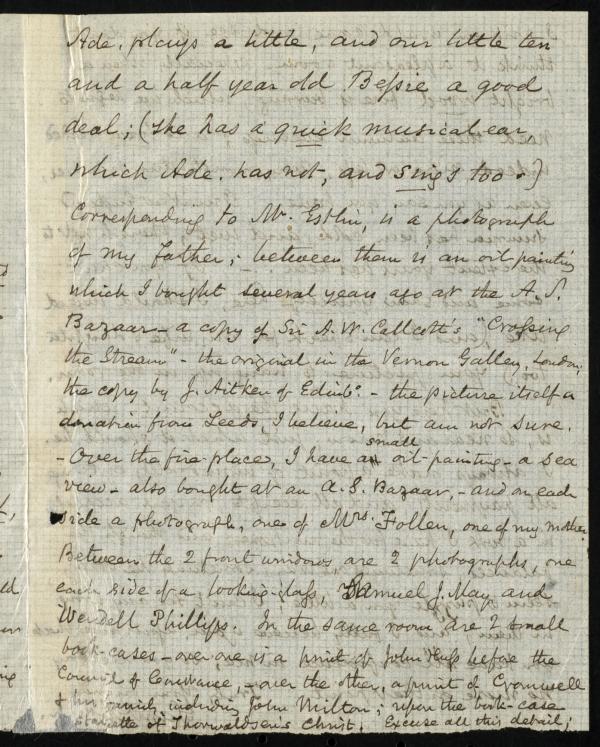 Ade. plays a little, and our little ten
and a half year old Bessie a good
deal; (she has a quick musical ear,
which Ade. has not, and sings too.)
Corresponding to Mr. Estlin, is a photograph
of my father; between them is an oil painting
which I bought several years ago at the A. S.
Bazaar - a copy of Sir A. W. Callcott's "Crossing
the Stream" - the original in the Vernon Galley, London,
the copy by J. Aitken of Edinbo. - the picture itself a
donation from Leeds, I believe, but am not sure.
- Over the fire-place, I have a small oil-painting - a sea
view - also bought at an A. S. Bazaar, - and on each
side a photograph, one of Mrs. Follen, one of my mother.
Between the 2 front windows, are 2 photographs, one
each side of a looking-glass, Samuel J. May and
Wendell Phillips. In the same room are 2 small
book-cases - over one is a print of John Huss before the
Council of Constance, - over the other, a print of Cromwell
& his family, including John Milton; upon the book-case
statuette of Thorwaldsen's Christ. Excuse all this detail;